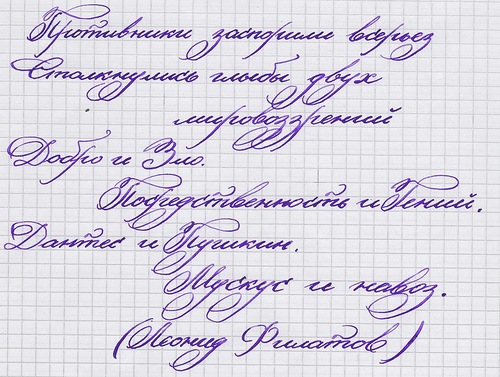 Противники заспорили всерьез
Столкнулись глыбы двух
мировоззрений
Добро и Зло.
Посредственность и Гений.
Дантес и Пушкин.
Мускус и навоз.
(Леонид Филатов)